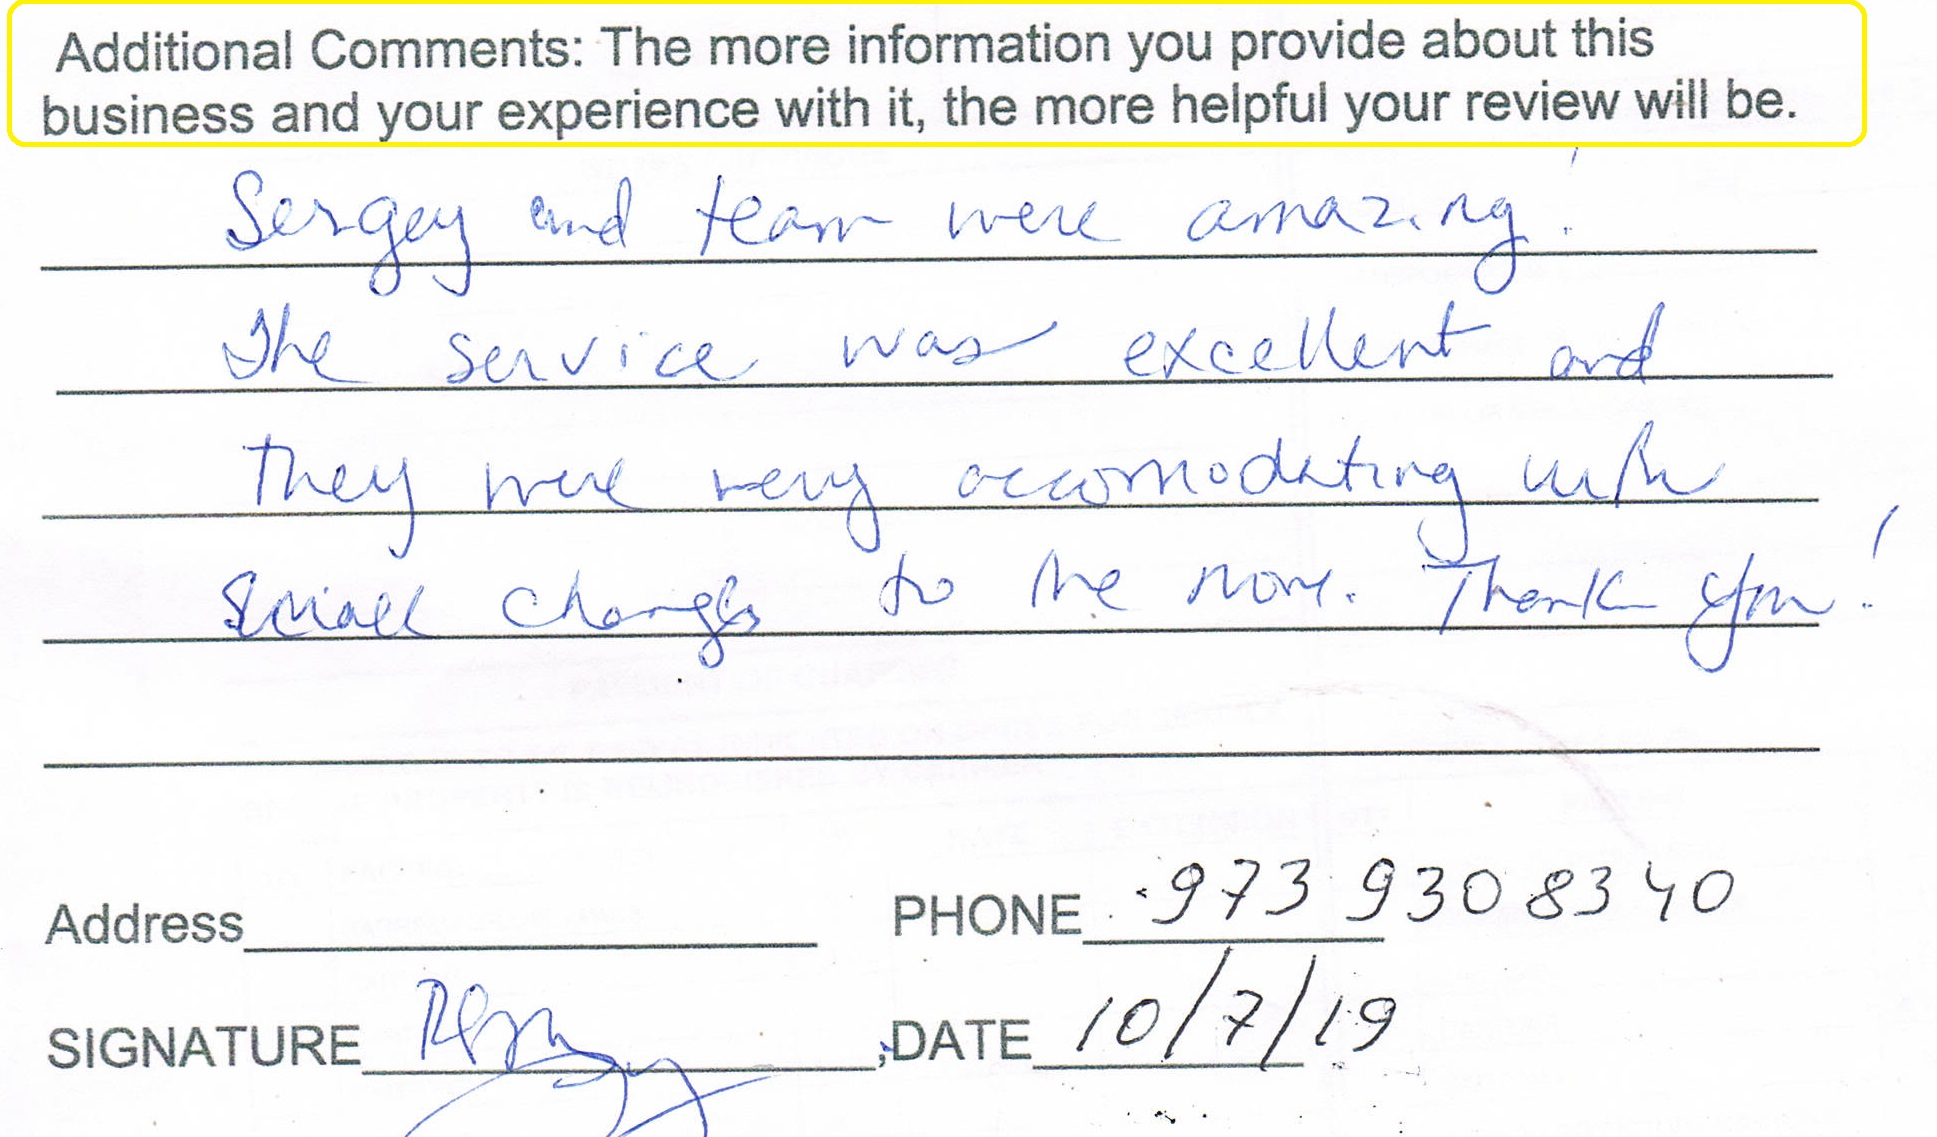 Additional Comments: The more information you provide about this
business and your experience with it, the more helpful your review will be.
Sergey and team were amazing!
The service was excellent and
they were very accomodating with
small changes to the move. Thank you!
Address
PHONE 973 930 8340
SIGNATURE
DATE 10/7/19